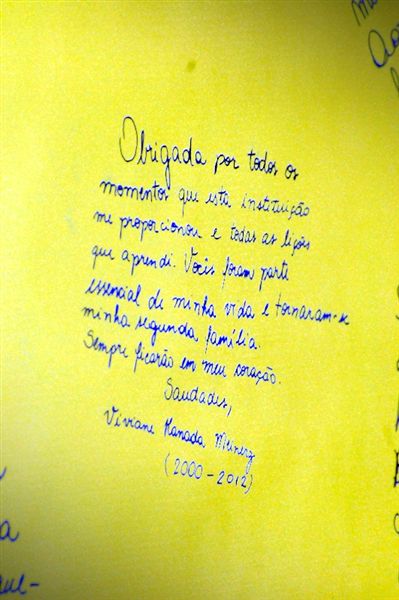 Obrigada por todos os
momentos que esta instituição
me proporcionou e todas as lições
que aprendi. Vocês foram parte
essencial de minha vida e tornaram-se
minha segunda família.
Sempre ficarão em meu coração.
Saudades,
Viviane Kanada Meinerz
(2000-2012)